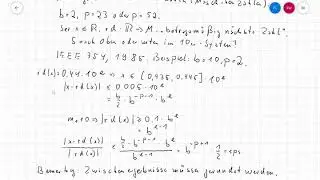 b=2, p=23 oder p=52.
Sei x∈ℝ, rd: ℝ→M „betragsmäßig nächste Zahl“,
5 nach oben oder unten im 10er-System?
IEEE 754, 1985. Beispiel: b=10, p=2,
rd(x)=0,44·10^e ⇒ x∈[0,435, 0,445]·10^e
|x-rd(x)| ≤ 0,005·10^e
= b/2 · b^{-p-1} · b^e
m_1≠0 ⇒ |rd(x)| ≥ 0,1·b^e
= b^{e-1}
|x-rd(x)| / |rd(x)| ≤ (b/2 · b^{-p-1} · b^e) / b^{e-1} = b^{-p+1} · 1/2 = eps
Zwischenergebnisse müssen gerundet werden.